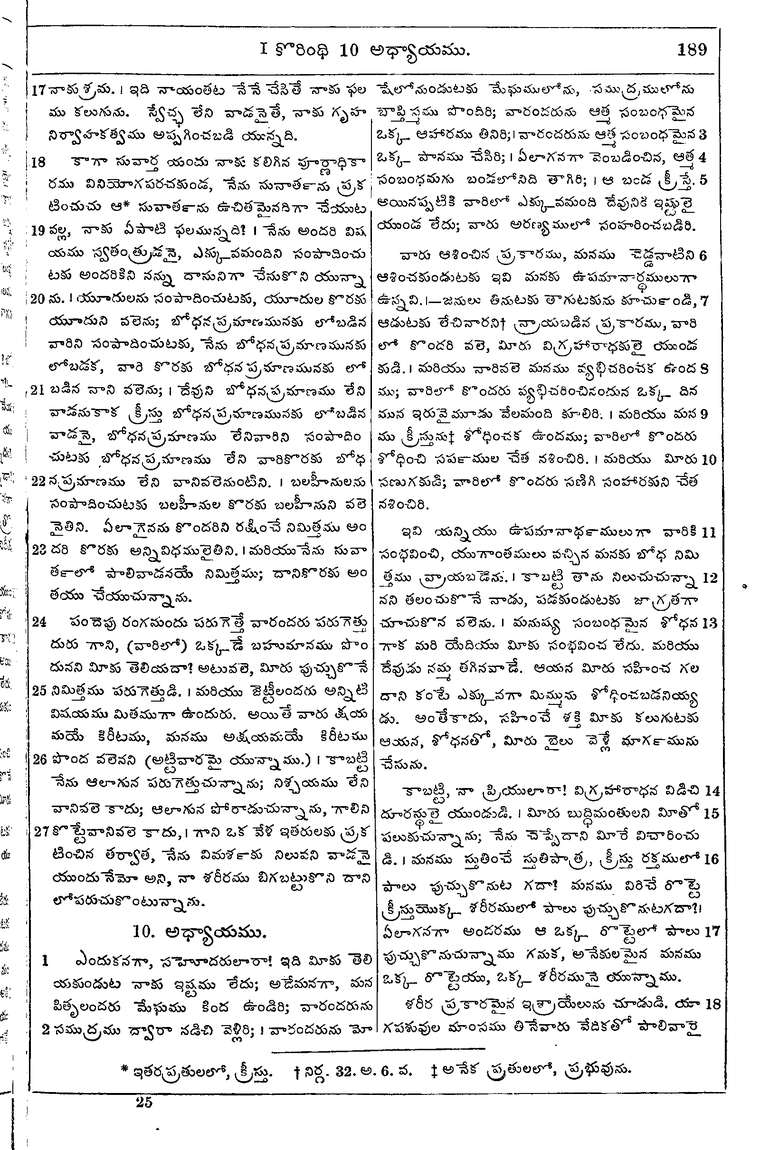 I కొరింథి 10 అధ్యాయము.
189
17 నాకు శ్రమ. । ఇది నాయంతట నేనే చేసితే నాకు ఫల
ము కలుగును. స్వేచ్ఛ లేని వాడనైతే, నాకు గృహ
నిర్వాహకత్వము అప్పగించబడి యున్నది.
18 కాగా సువార్త యందు నాకు కలిగిన పూర్ణాధికా
రము వినియోగపరచకుండ, నేను సువార్తను ప్రక
టించుచు ఆ* సువార్తను ఉచితమైనదిగా చేయుట
19 వల్ల, నాకు ఏపాటి ఫలమున్నది? । నేను అందరి విష
యము స్వతంత్రుడనై, ఎక్కువమందిని సంపాదించు
టకు అందరికిని నన్ను దాసునిగా చేసుకొని యున్నా
20 ను. । యూదులను సంపాదించుటకు, యూదుల కొరకు
యూదుని వలెను; బోధనప్రమాణమునకు లోబడిన
వారిని సంపాదించుటకు, నేను బోధనప్రమాణమునకు
లోబడక, వారి కొరకు బోధనప్రమాణమునకు లో
21 బడిన వాని వలెను; । దేవుని బోధనప్రమాణము లేని
వాడనుకాక క్రీస్తు బోధనప్రమాణమునకు లోబడిన
వాడనై, బోధనప్రమాణము లేనివారిని సంపాదిం
చుటకు బోధనప్రమాణము లేని వారికొరకు బోధ
22 నప్రమాణము లేని వానివలెనుంటిని. । బలహీనులను
సంపాదించుటకు బలహీనుల కొరకు బలహీనుని వలె
నైతిని. ఏలాగైనను కొందరిని రక్షించే నిమిత్తము అం
23 దరి కొరకు అన్నివిధములైతిని. । మరియు నేను సువా
ర్తలో పాలివాడనయే నిమిత్తము; దానికొరకు అం
తయు చేయుచున్నాను.
24 పందెపు రంగమందు పరుగెత్తే వారందరు పరుగెత్తు
దురు గాని, (వారిలో) ఒక్కడే బహుమానము పొం
దునని మీకు తెలియదా? అటువలె, మీరు పుచ్చుకొనే
25 నిమిత్తము పరుగెత్తుడి. । మరియు జెట్టీలందరు అన్నిటి
విషయము మితముగా ఉందురు. అయితే వారు క్షయ
మయే కిరీటము, మనము అక్షయమయే కిరీటము
26 పొంద వలెనని (అట్టివారమై యున్నాము.) । కాబట్టి
నేను ఆలాగున పరుగెత్తుచున్నాను; నిశ్చయము లేని
వానివలె కాదు; ఆలాగున పోరాడుచున్నాను, గాలిని
27 కొట్టేవానివలె కాదు, । గాని ఒక వేళ ఇతరులకు ప్రక
టించిన తర్వాత, నేను విమర్శకు నిలువని వాడనై
యుందునేమో అని, నా శరీరము బిగబట్టుకొని దాని
లోపరుచుకొంటున్నాను.
10. అధ్యాయము.
1 ఎందుకనగా, సహోదరులారా! ఇది మీకు తెలి
యకుండుట నాకు ఇష్టము లేదు; అదేమనగా, మన
పితృలందరు మేఘము కింద ఉండిరి; వారందరును
2 సముద్రము ద్వారా నడిచి వెళ్లిరి; । వారందరును మో
షేలోనుండుటకు మేఘములోను, సముద్రములోను
బాప్తిస్మము పొందిరి; వారందరును ఆత్మ సంబంధమైన
ఒక్క ఆహారము తినిరి; । వారందరును ఆత్మ సంబంధమైన 3
ఒక్క పానము చేసిరి; । ఏలాగనగా వెంబడించిన, ఆత్మ 4
సంబంధమగు బండలోనిది తాగిరి; । ఆ బండ క్రీస్తే. 5
అయినప్పటికి వారిలో ఎక్కువమంది దేవునికి ఇష్టులై
యుండ లేదు; వారు అరణ్యములో సంహరించబడిరి.
వారు ఆశించిన ప్రకారము, మనము చెడ్డవాటిని 6
ఆశించకుండుటకు ఇవి మనకు ఉపమానార్థములుగా
ఉన్నవి. ।—జనులు తినుటకు తాగుటకును కూర్చుండి, 7
ఆడుటకు లేచినారని† వ్రాయబడిన ప్రకారము, వారి
లో కొందరి వలె, మీరు విగ్రహారాధకులై యుండ
కుడి. । మరియు వారివలె మనము వ్యభిచరించక ఉంద 8
ము; వారిలో కొందరు వ్యభిచరించినందున ఒక్క దిన
మున ఇరువైమూడు వేలమంది కూలిరి. । మరియు మన 9
ము క్రీస్తును‡ శోధించక ఉందము; వారిలో కొందరు
శోధించి సర్పముల చేత నశించిరి. । మరియు మీరు 10
సణుగకుడి; వారిలో కొందరు సణిగి సంహారకుని చేత
నశించిరి.
ఇవి యన్నియు ఉపమానార్థములుగా వారికి 11
సంభవించి, యుగాంతములు వచ్చిన మనకు బోధ నిమి
త్తము వ్రాయబడెను. । కాబట్టి తాను నిలుచుచున్నా 12
నని తలంచుకొనే వాడు, పడకుండుటకు జాగ్రతగా
చూచుకొన వలెను. । మనుష్య సంబంధమైన శోధన 13
గాక మరి యేదియు మీకు సంభవించ లేదు. మరియు
దేవుడు నమ్మ తగినవాడే. ఆయన మీరు సహించ గల
దాని కంటే ఎక్కువగా మిమ్మును శోధించబడనియ్య
డు. అంతేకాదు, సహించే శక్తి మీకు కలుగుటకు
ఆయన, శోధనతో, మీరు బైలు వెళ్లే మార్గమును
చేసును.
కాబట్టి, నా ప్రియులారా! విగ్రహారాధన విడిచి 14
దూరస్థులై యుండుడి. । మీరు బుద్ధిమంతులని మీతో 15
పలుకుచున్నాను; నేను చెప్పేదాని మీరే విచారించు
డి. । మనము స్తుతించే స్తుతిపాత్ర, క్రీస్తు రక్తములో 16
పాలు పుచ్చుకొనుట గదా? మనము విరిచే రొట్టె
క్రీస్తుయొక్క శరీరములో పాలు పుచ్చుకొనుటగదా? ।
ఏలాగనగా అందరము ఆ ఒక్క రొట్టెలో పాలు 17
పుచ్చుకొనుచున్నాము గనుక, అనేకులమైన మనము
ఒక్క రొట్టెయు, ఒక్క శరీరమునై యున్నాము.
శరీర ప్రకారమైన ఇశ్రాయేలును చూడుడి. యా 18
గపశువుల మాంసము తినేవారు వేదికతో పాలివారై
* ఇతరప్రతులలో, క్రీస్తు. † నిర్గ. 32. అ. 6. వ. ‡ అనేక ప్రతులలో, ప్రభువును.
25